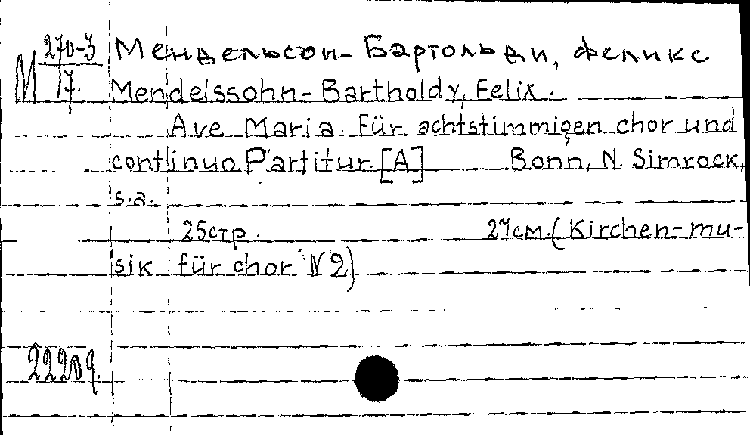 М 270-3/7. Мендельсон-Бартольди, Феликс
Mendelssohn-Bartholdy, Felix.
Ave Maria. Für achtstimmigen chor und
continuo Partitur [A] Bonn, N. Simrock,
s.a.
25стр. 27см. (Kirchen-mu-
sik für chor N 2)